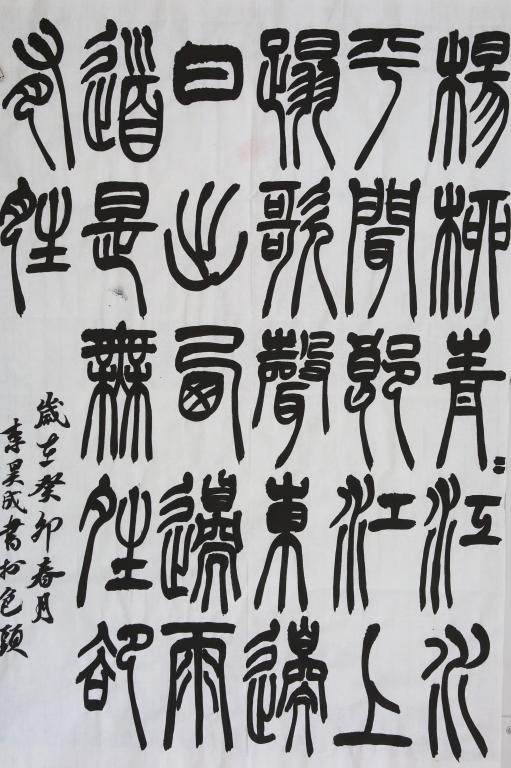 楊柳青〻江水
平聞郎江上
蹋歌聲東邊
日出西邊雨
道是無晴卻
有晴
歲在癸卯春月
李昊成書於包頭